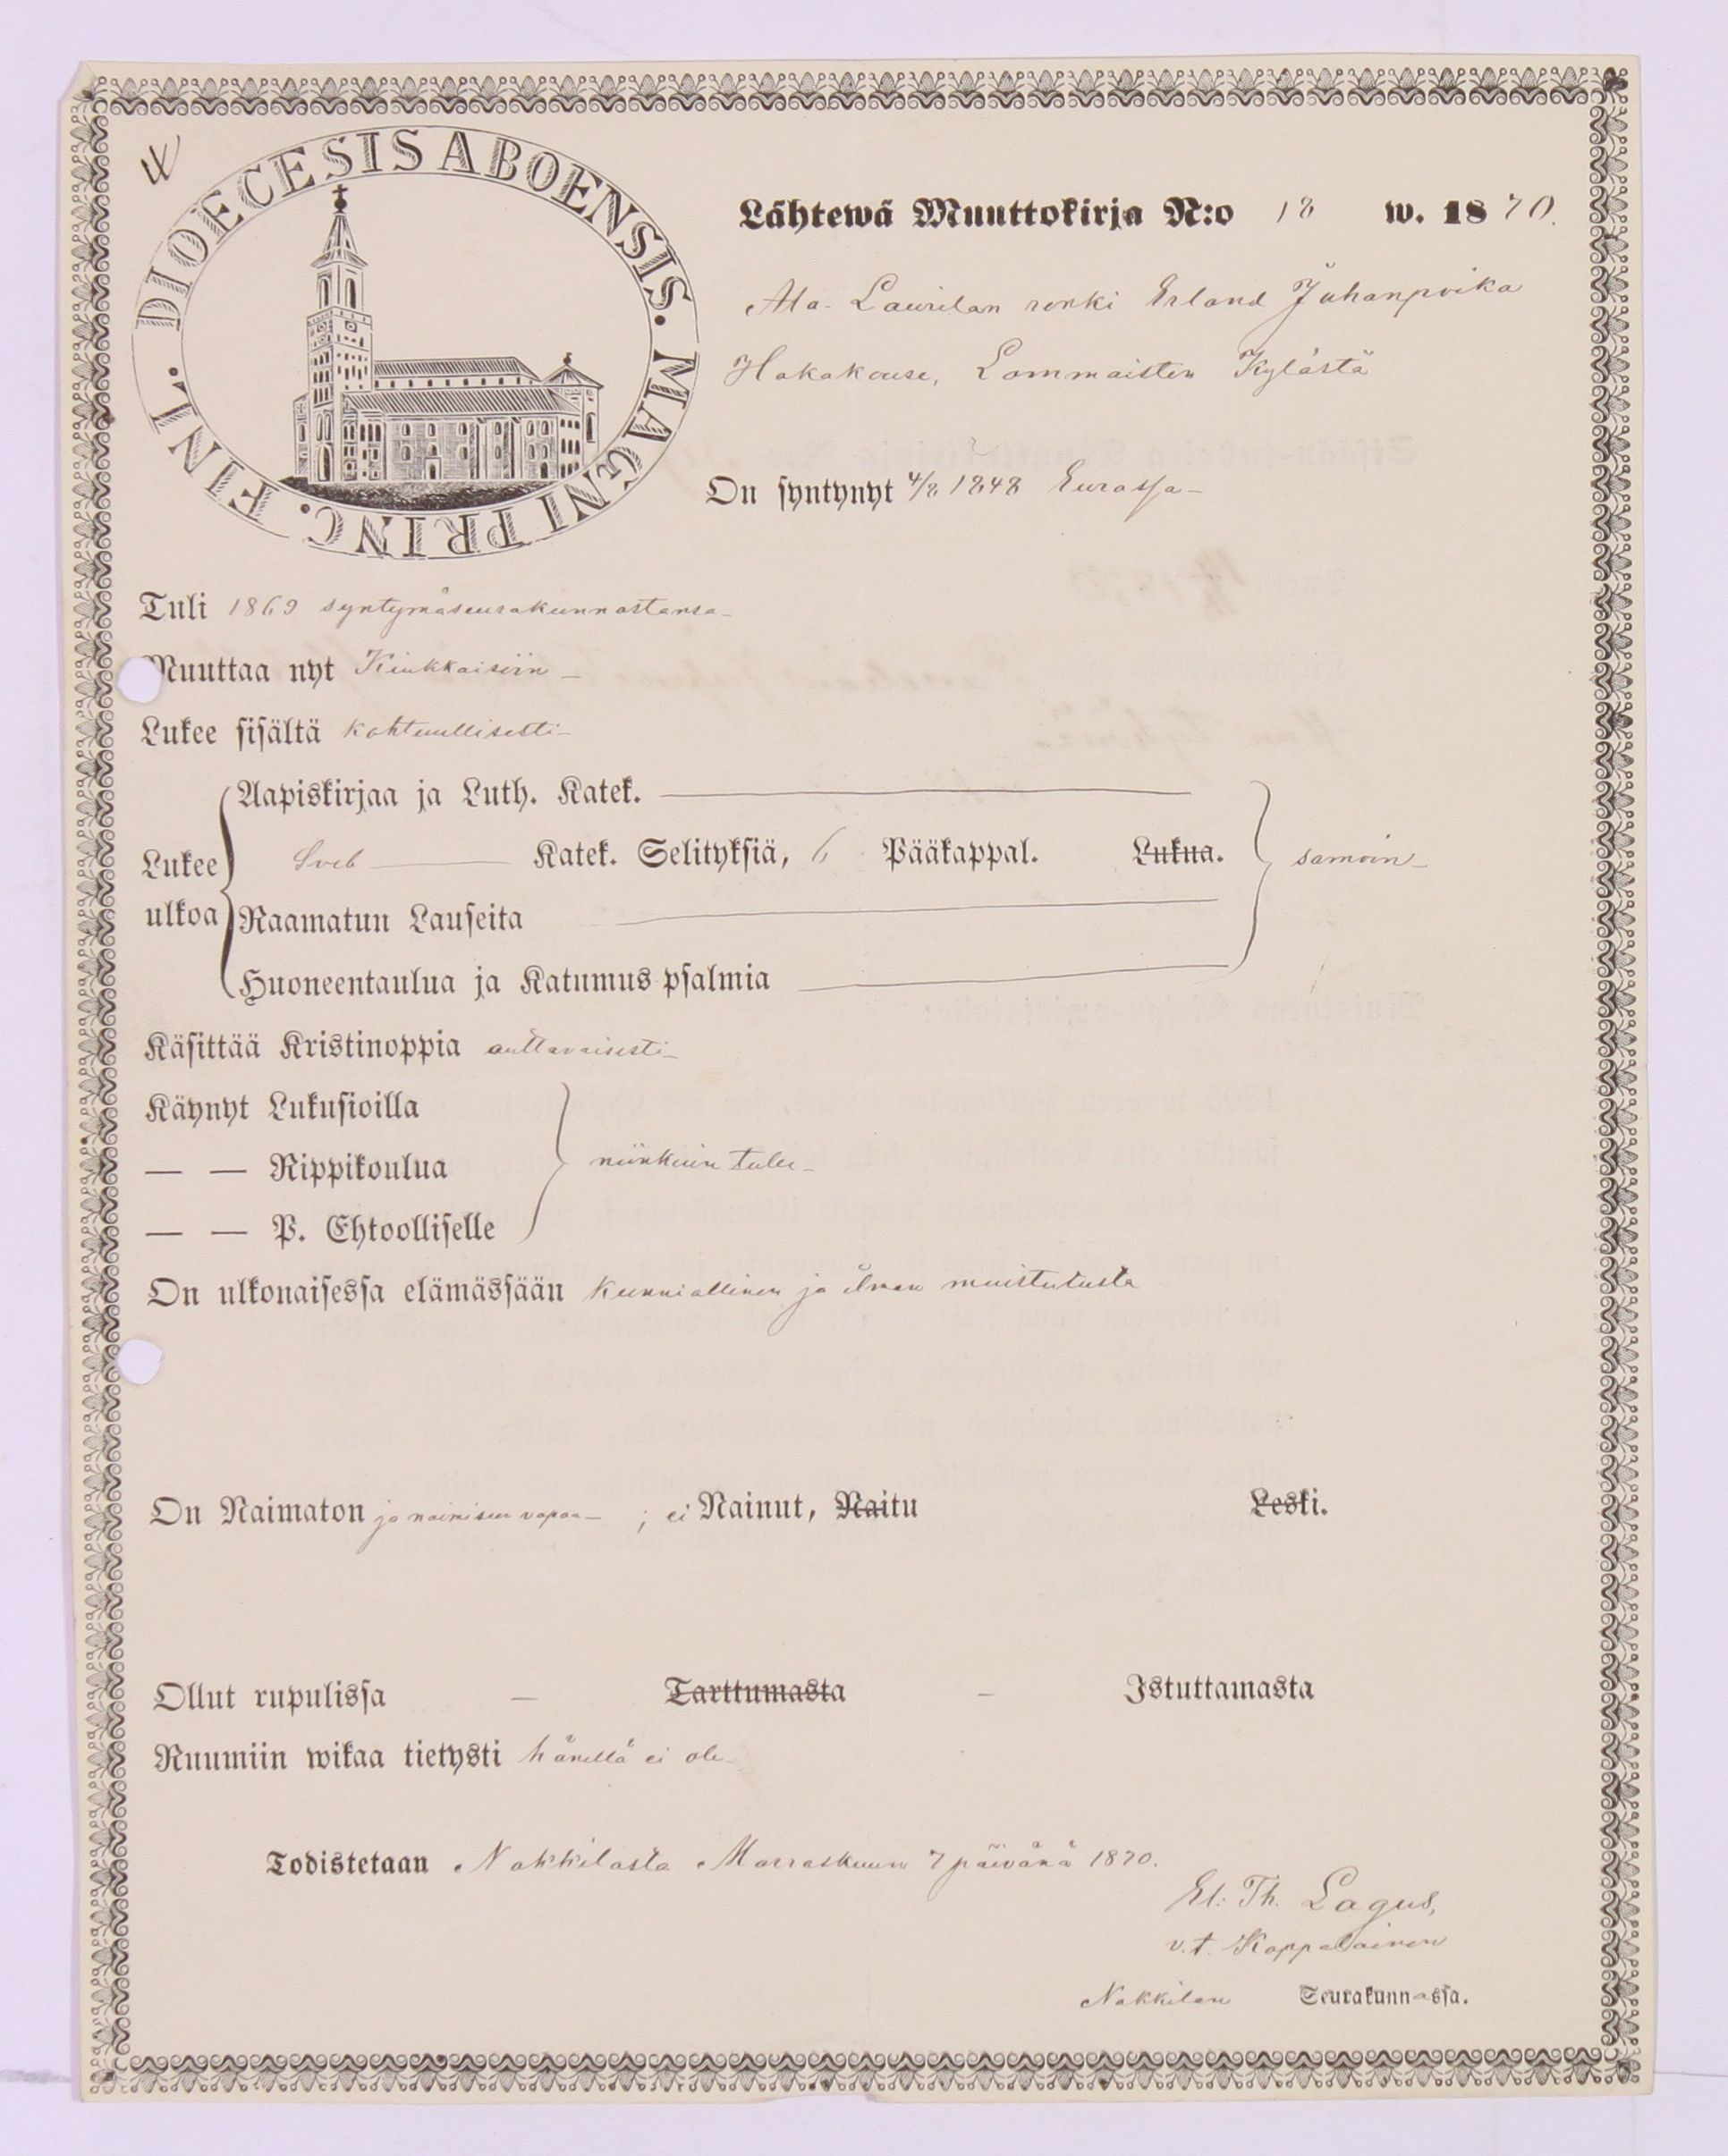 DIOECESIS ABOENSIS. MAGNI PRINC. FINL.
Lähtewä Muuttokirja N:o 18 w. 1870.
Ala-Laurilan renki Erland Juhanpoika
Lommaisten Kylästä
On syntynyt 4/8 1848 Eurassa-
Tuli 1869 syntymäseurakunnastansa-
Muuttaa nyt Kiukkaisiin-
Lukee sisältä kohtuullisesti-
Aapiskirjaa ja Luth. Katek.
Lukee ulkoa
Sveb Katek. Selityksiä, 6 Pääkappal. Lukua. samoin-
Raamatun Lauseita
Huoneentaulua ja Katumus psalmia
Käsittää Kristinoppia auttavaisesti-
Käynyt Lukusioilla
— — Rippikoulua niinkuin tulee-
— — P. Ehtoolliselle
On ulkonaisessa elämässään kunniallinen ja ilman muistutusta
On Naimaton ja naimiseen vapaa- ; ei Nainut, Naitu Leski.
Ollut rupulissa - Tarttumasta - Istuttamasta
Ruumiin wikaa tietysti hänellä ei ole-
Todistetaan Nakkilasta Marraskuun 7 päivänä 1870.
El: Th. Lagus,
v.t. Kappalainen
Nakkilan Seurakunnassa.